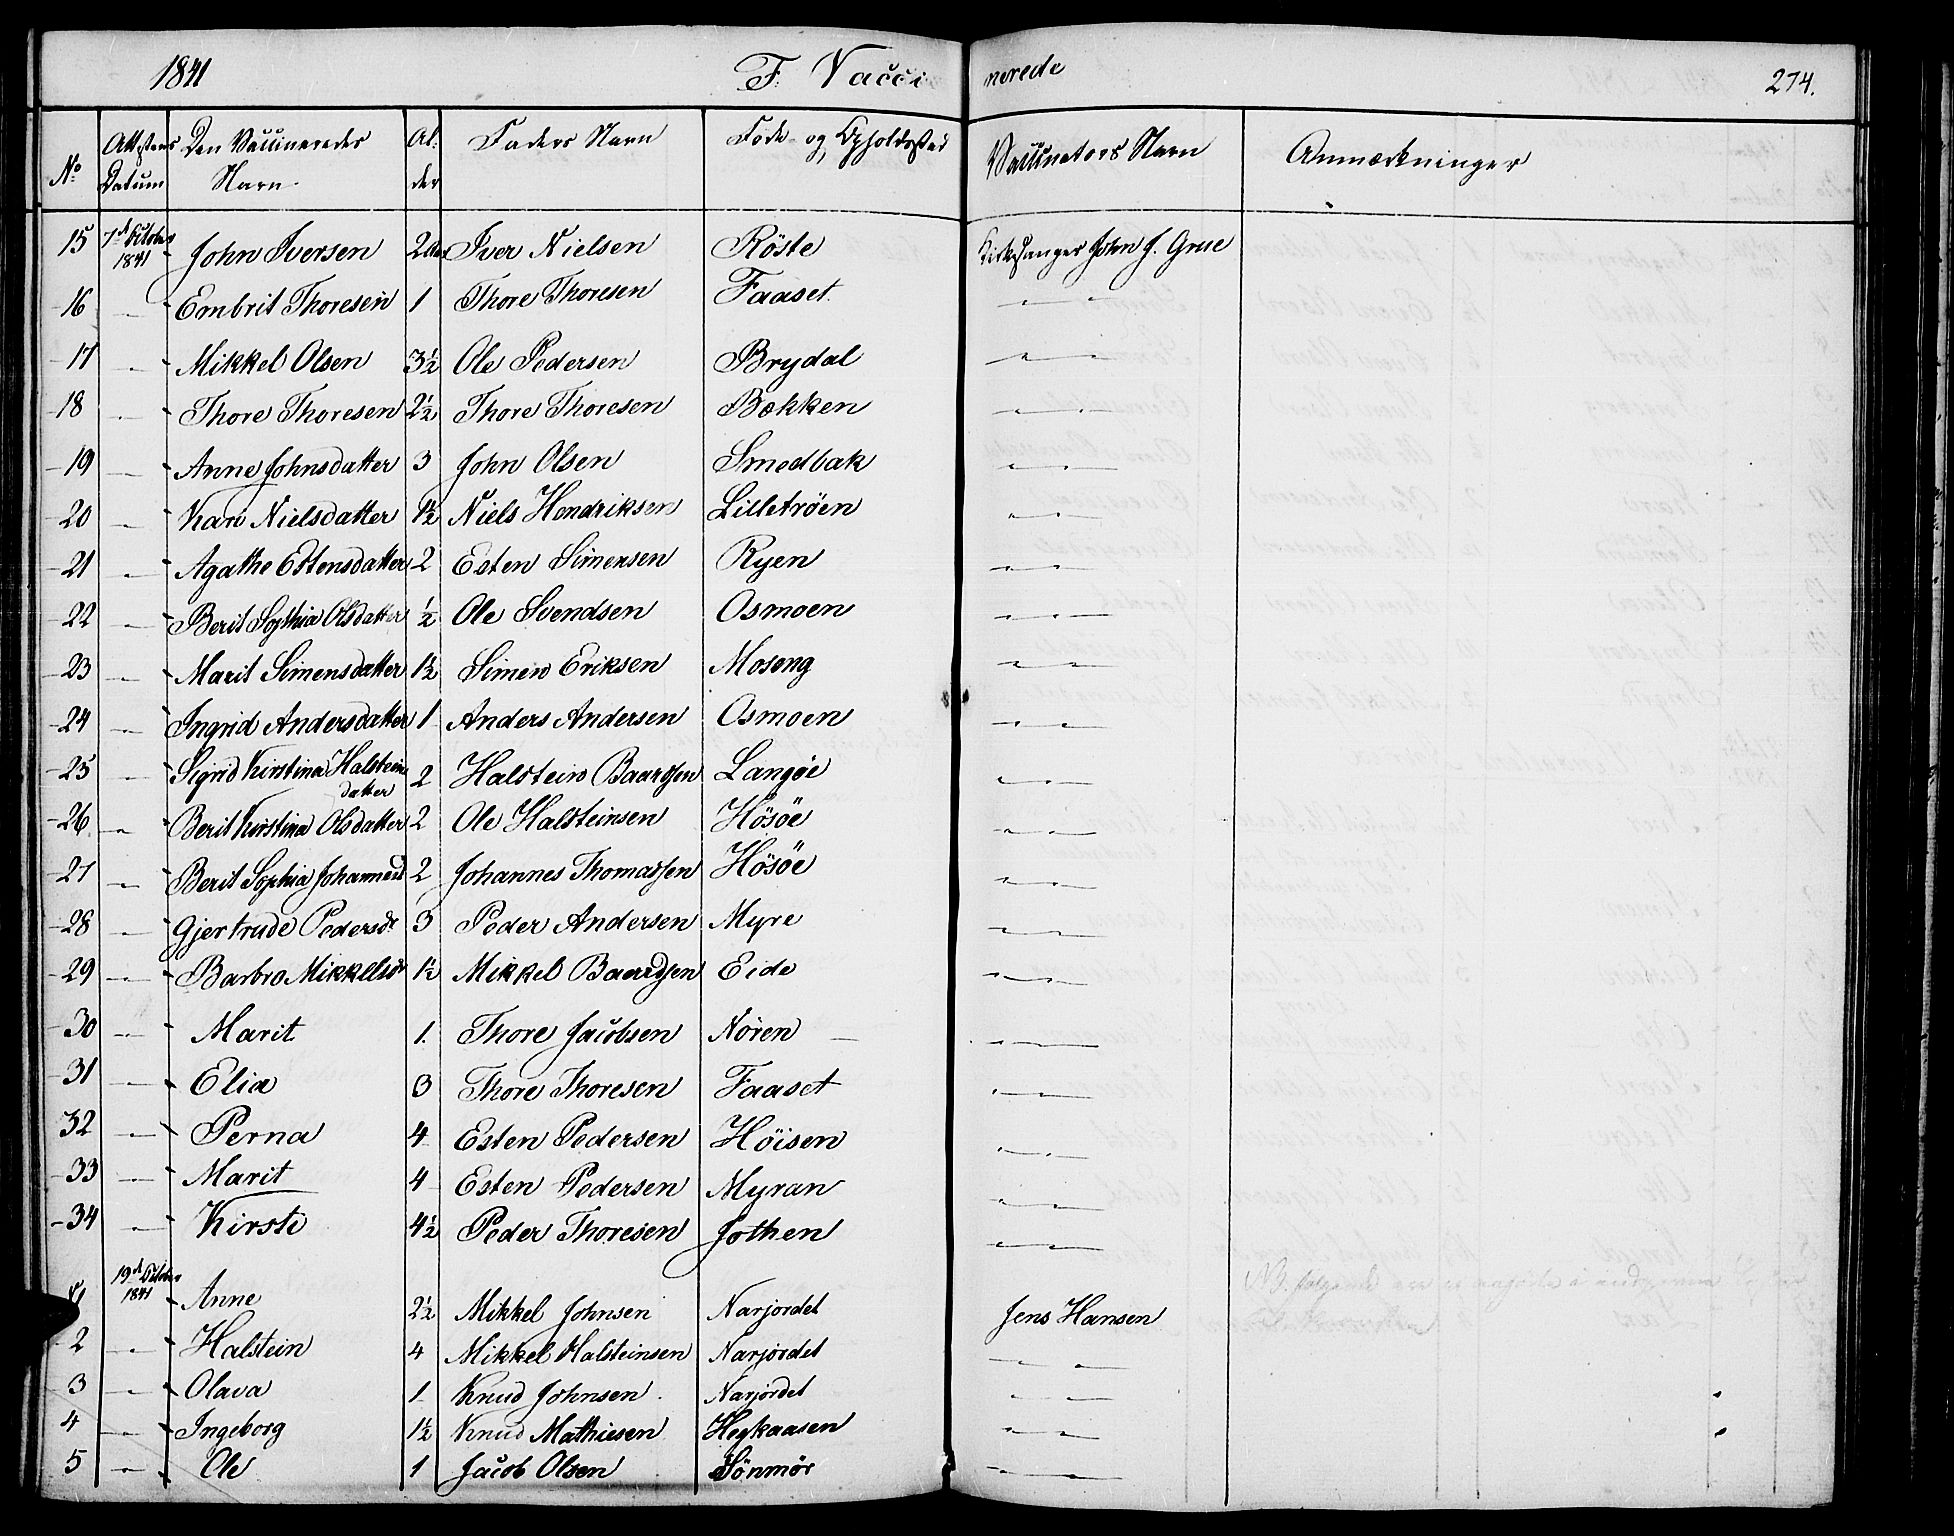 1841 F. Vaccinerede 274.
No Attestens Datum Den Vaccineredes Navn Alder Faders Navn Føde- og Opholdssted Vaccinators Navn Anmærkninger
15 7d October 1841 John Iversen 2 Iver Nielsen Röste Kirkesanger John J. Grue
16 — Embrit Thoresen 1 Thore Thoresen Faaset — —
17 — Mikkel Olsen 3½ Ole Pedersen Brydal — —
18 — Thore Thoresen 2½ Thore Thoresen Bækken — —
19 — Anne Johnsdatter 3 John Olsen Smedbak — —
20 — Kari Nielsdatter 1½ Niels Hendriksen Lilletröen — —
21 — Agathe Estensdatter 2 Esten Simensen Ryen — —
22 — Berit Sophia Olsdatter ½ Ole Svendsen Osmoen — —
23 — Marit Simensdatter 1½ Simen Eriksen Moseng — —
24 — Ingrid Andersdatter 1 Anders Andersen Osmoen — —
25 — Sigrid Kirstina Halsteindatter 2 Halstein Baardsen Langöe — —
26 — Berit Kirstina Olsdatter 2 Ole Halsteinsen Hösöe — —
27 — Berit Sophia Johannesd 2 Johannes Thomassen Hösöe — —
28 — Gjertrude Pedersdr 3 Peder Andersen Myre — —
29 — Barbro Mikkelsdr 1½ Mikkel Baardsen Eide — —
30 — Marit 1. Thore Jacobsen Nören — —
31 — Elia 3 Thore Thoresen Faaset — —
32 — Perna 4 Esten Pedersen Höisen — —
33 — Marit 4 Esten Pedersen Myran — —
34 — Kirsti 4½ Peder Thoresen Jothen — —
1 19d October 1841 Anne 2½ Mikkel Johnsen Narjordet Jens Hansen
2 — Halstein 4 Mikkel Halsteinsen Narjordet — —
3 — Olava 1 Knud Johnsen Narjordet — —
4 — Ingeborg 1½ Knud Mathiesen Hegkaasen — —
5 — Ole 1 Jacob Olsen Sönmör — —